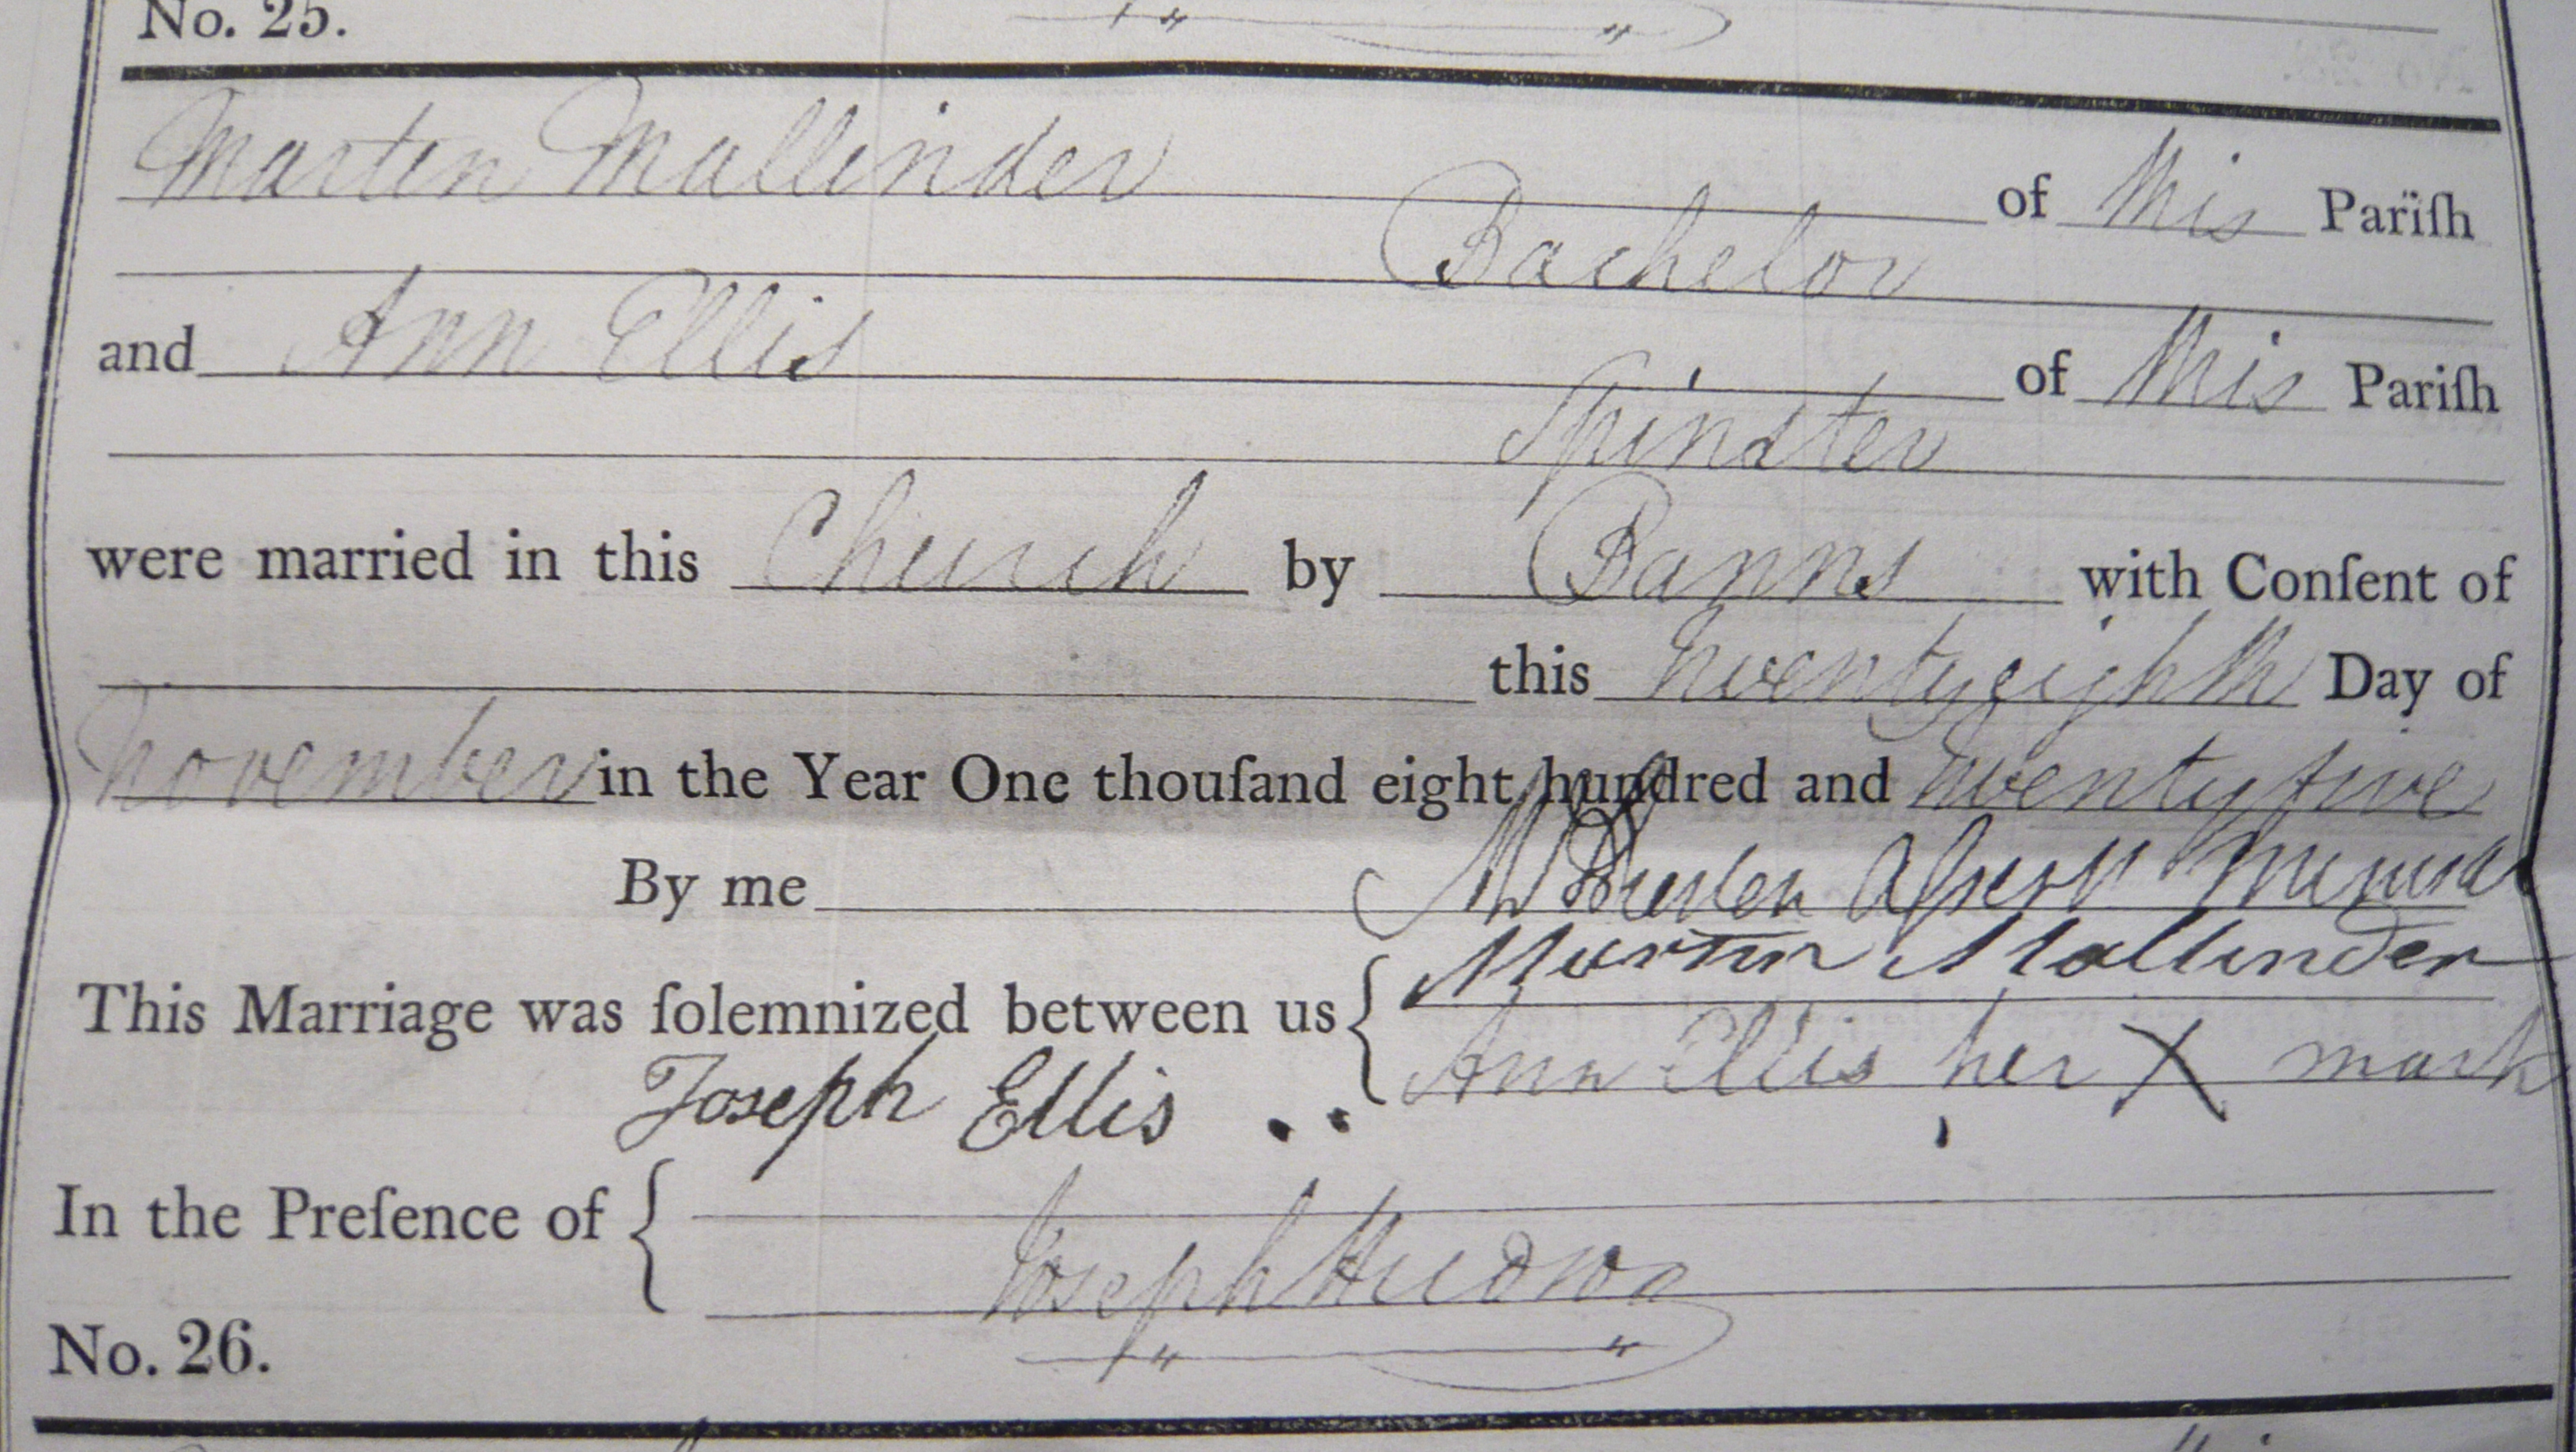 No. 25.
Martin Mallinder of this Pariſh
Bachelor
and Ann Ellis of this Pariſh
Spinster
were married in this Church by Banns with Conſent of
this twentyeighth Day of
November in the Year One thouſand eight hundred and twentyfive
By me
This Marriage was ſolemnized between us { Martin Mallinder
Ann Ellis her X mark
Joseph Ellis
In the Preſence of {
Joseph Hudson
No. 26.